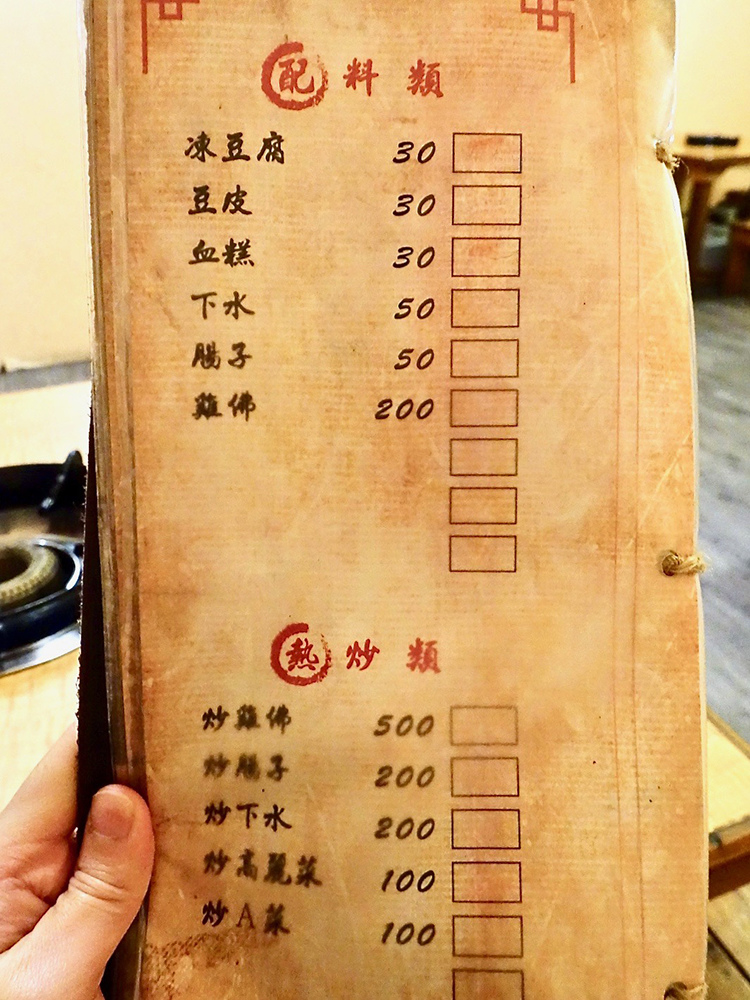 配料類
凍豆腐 30
豆皮 30
血糕 30
下水 50
腸子 50
雞佛 200
熱炒類
炒雞佛 500
炒腸子 200
炒下水 200
炒高麗菜 100
炒A菜 100